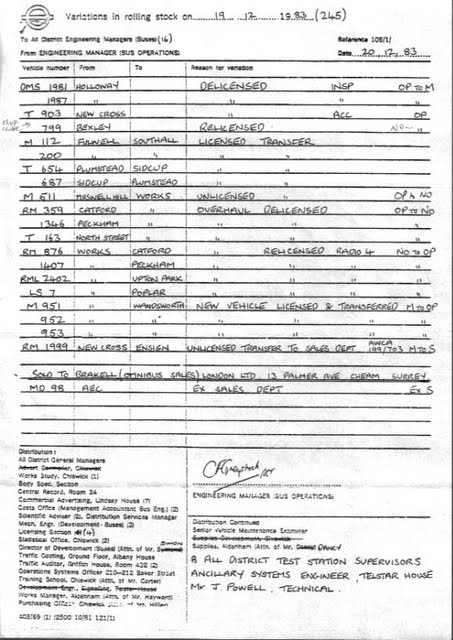 Variations in rolling stock on 19 12 1983 (245)
To All District Engineering Managers (Buses) (16) Reference 105/1/
From ENGINEERING MANAGER (BUS OPERATIONS) Date 20.12.83
Vehicle number From To Reason for variation
DMS 1981 HOLLOWAY DELICENSED INSP OP TO M
1987 " " " "
T 903 NEW CROSS " ACC OP
799 BEXLEY RELICENSED NO
M 112 FULWELL SOUTHALL LICENSED TRANSFER
200 " " " "
T 654 PLUMSTEAD SIDCUP " "
687 SIDCUP PLUMSTEAD " "
M 611 MUSWELL HILL WORKS UNLICENSED " OP to NO
RM 359 CATFORD " OVERHAUL DELICENSED OP TO NO
1346 PECKHAM " " " "
T 163 NORTH STREET " " " "
RM 876 WORKS CATFORD " RELICENSED RADIO 4 NO TO OP
1407 " PECKHAM " " " "
RML 2402 " UPTON PARK " " " "
LS 7 " POPLAR " " " "
M 951 " WANDSWORTH NEW VEHICLE LICENSED & TRANSFERRED M TO OP
952 " " " " " "
953 " " " " " "
RM 1999 NEW CROSS ENSIGN UNLICENSED TRANSFER TO SALES DEPT AWCA 199/703 M TO S
SOLD TO BRAKELL (OMNIBUS SALES) LONDON LTD, 13 PALMER AVE CHEAM SURREY
MD 98 AEC EX SALES DEPT EX S
Distribution:
All District General Managers
Advert Controller, Chiswick
Works Study, Chiswick (1)
Body Spec. Section
Central Record, Room 34
Commercial Advertising, Lindsey House (7)
Costs Office (Management Accountant Bus Eng.) (2)
Scientific Adviser (2), Distribution Services Manager
Mech. Engr. (Development - Buses) (3)
Licensing Section (4)
Statistical Office, Chiswick (2)
Director of Development (Buses) (Attn. of Mr. SIMON)
Traffic Costing, Ground Floor, Albany House
Traffic Auditor, Griffith House, Room 422 (2)
Operations Systems Officer 210-212 Baker Street
Training School, Chiswick (Attn. of Mr. Carter)
Development Engr., Signaling, Telstar House
Works Manager, Aldenham (Attn. of Mr. Hayward)
Purchasing Officer Chiswick (Attn. of Mr. Hillier)
403/69 (1) (2500 10/81 121/1)
ENGINEERING MANAGER (BUS OPERATIONS)
Distribution Continued
Senior Vehicle Maintenance Examiner
Supplies Development, Chiswick
Supplies, Aldenham (Attn. of Mr. DANCY)
8 ALL DISTRICT TEST STATION SUPERVISORS
ANCILLARY SYSTEMS ENGINEER, TELSTAR HOUSE
Mr J. POWELL, TECHNICAL.